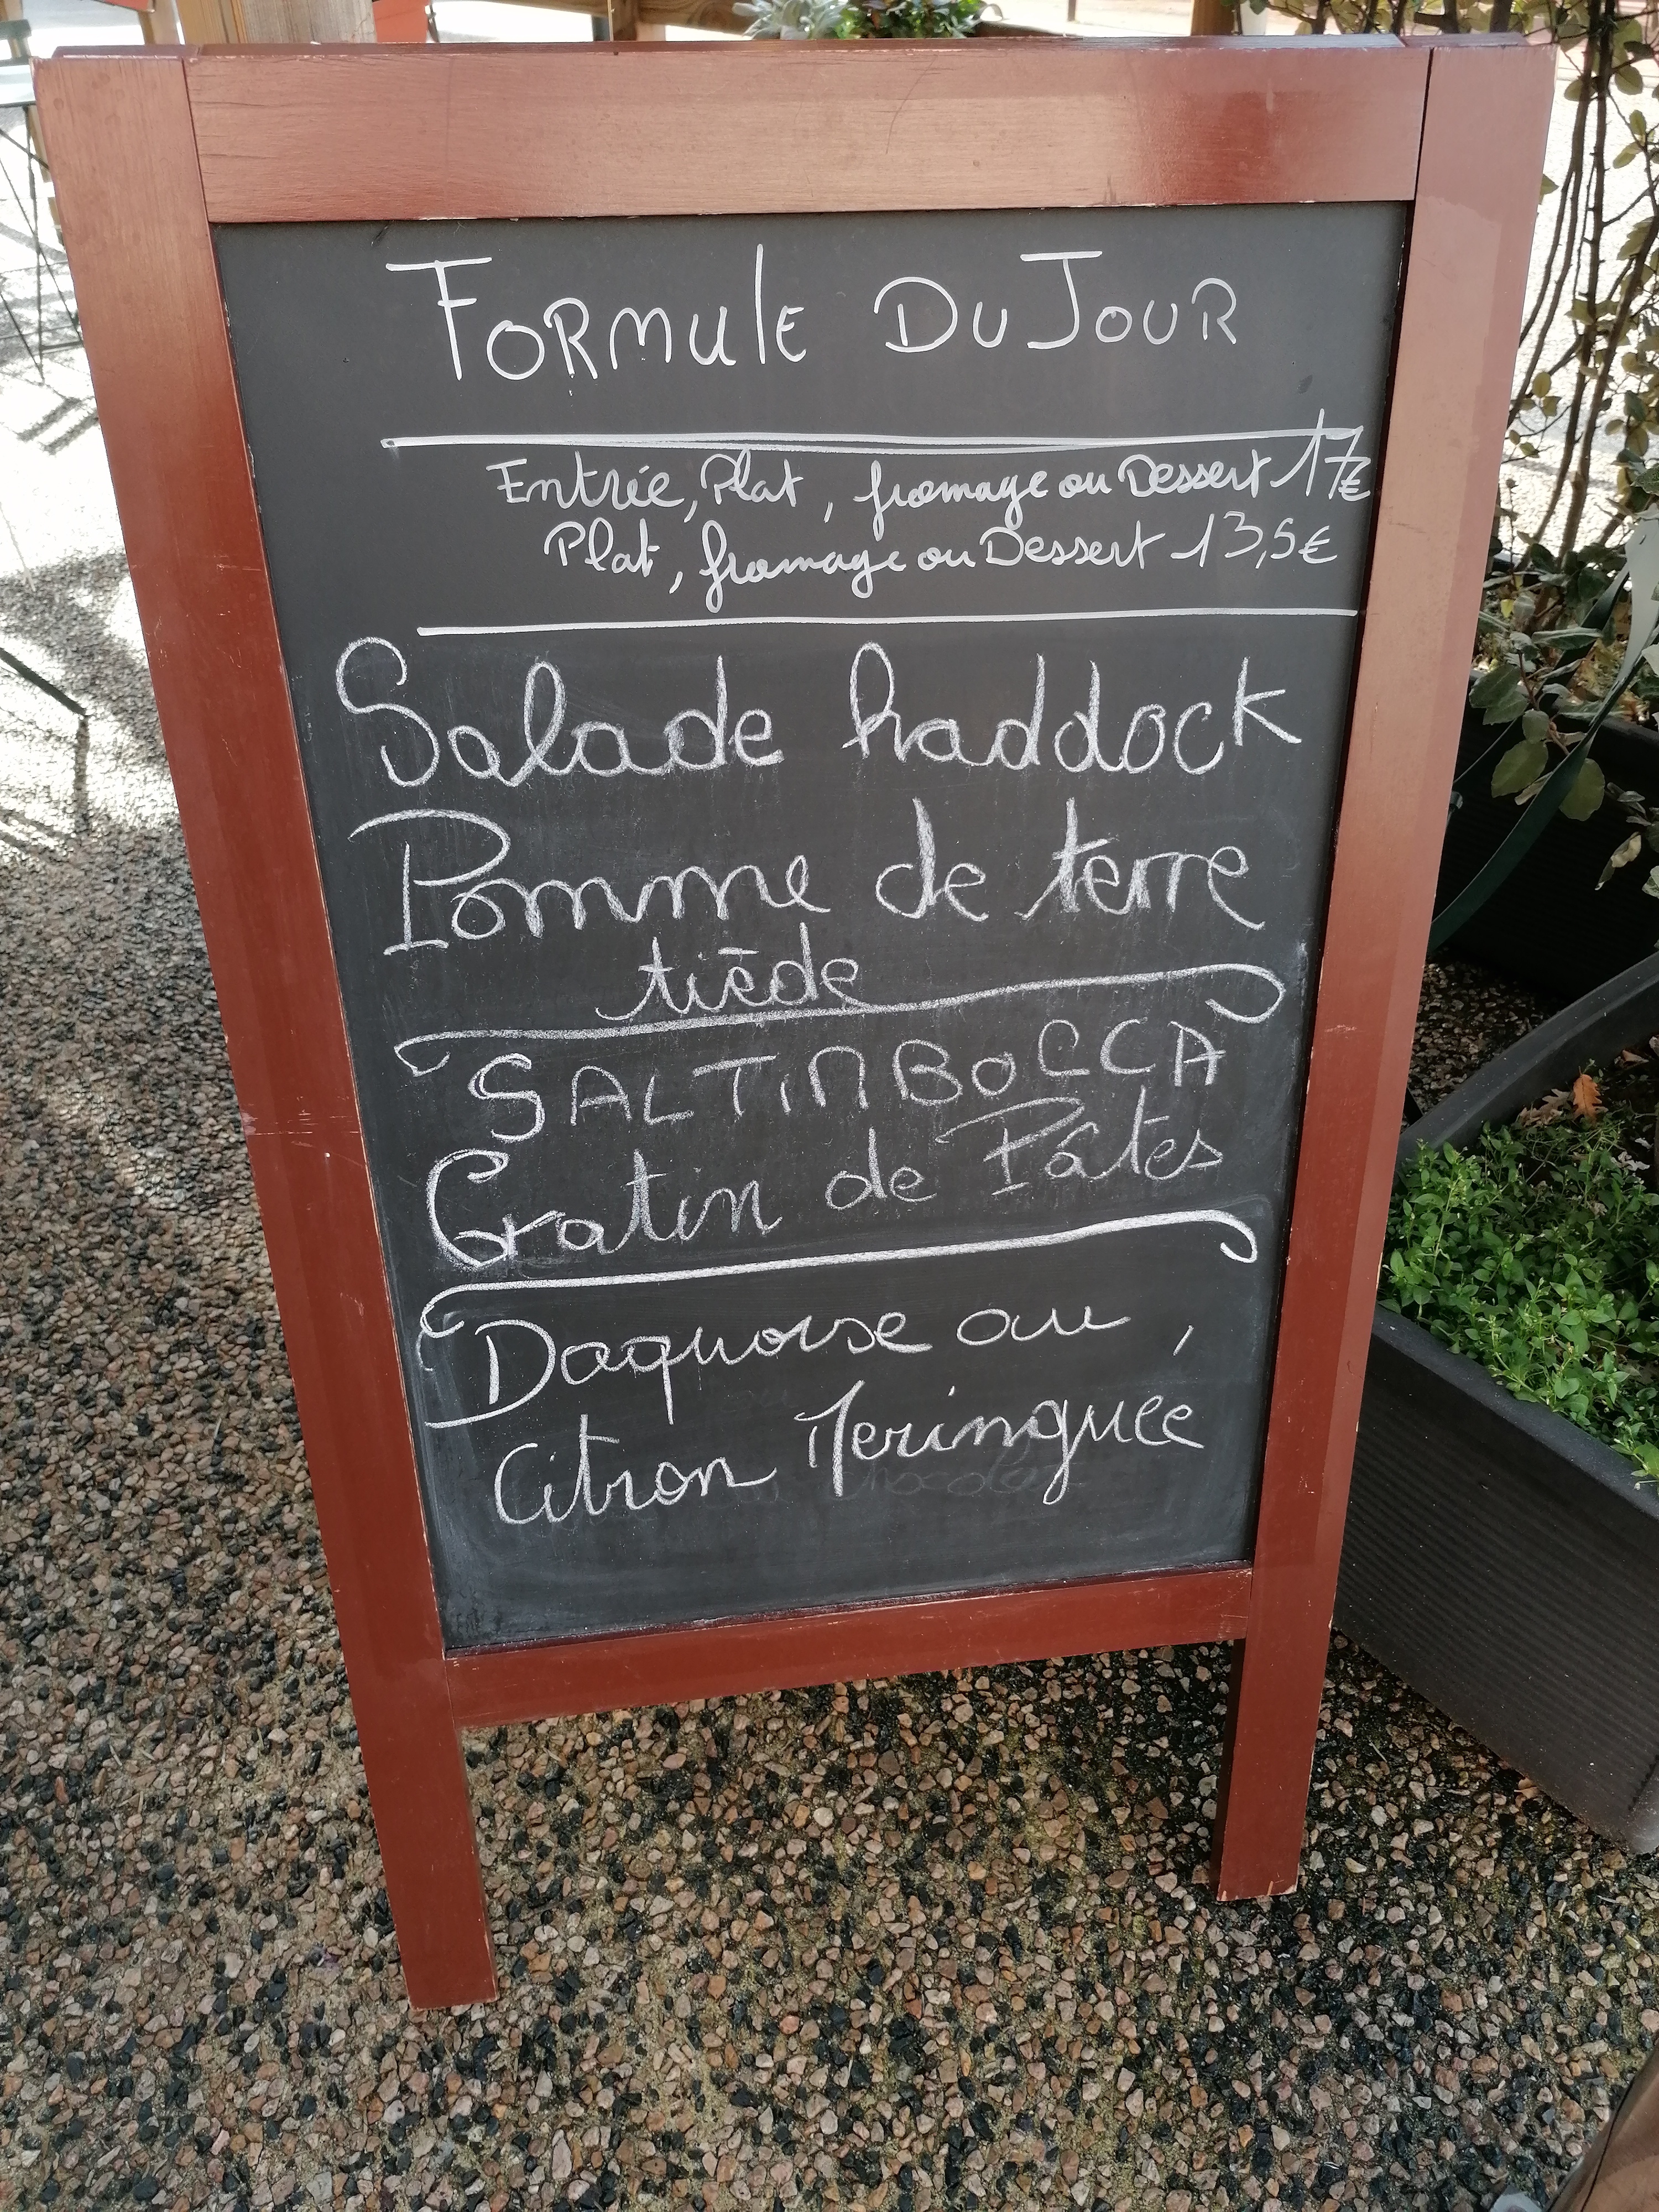 FORMULE DU JOUR
Entrée, Plat, fromage ou Dessert 17€
Plat, fromage ou Dessert 13,5€
Salade haddock
Pomme de terre
tiède
SALTINBOCCA
Gratin de Pâtes
Daquoise ou
Citron Meringuée